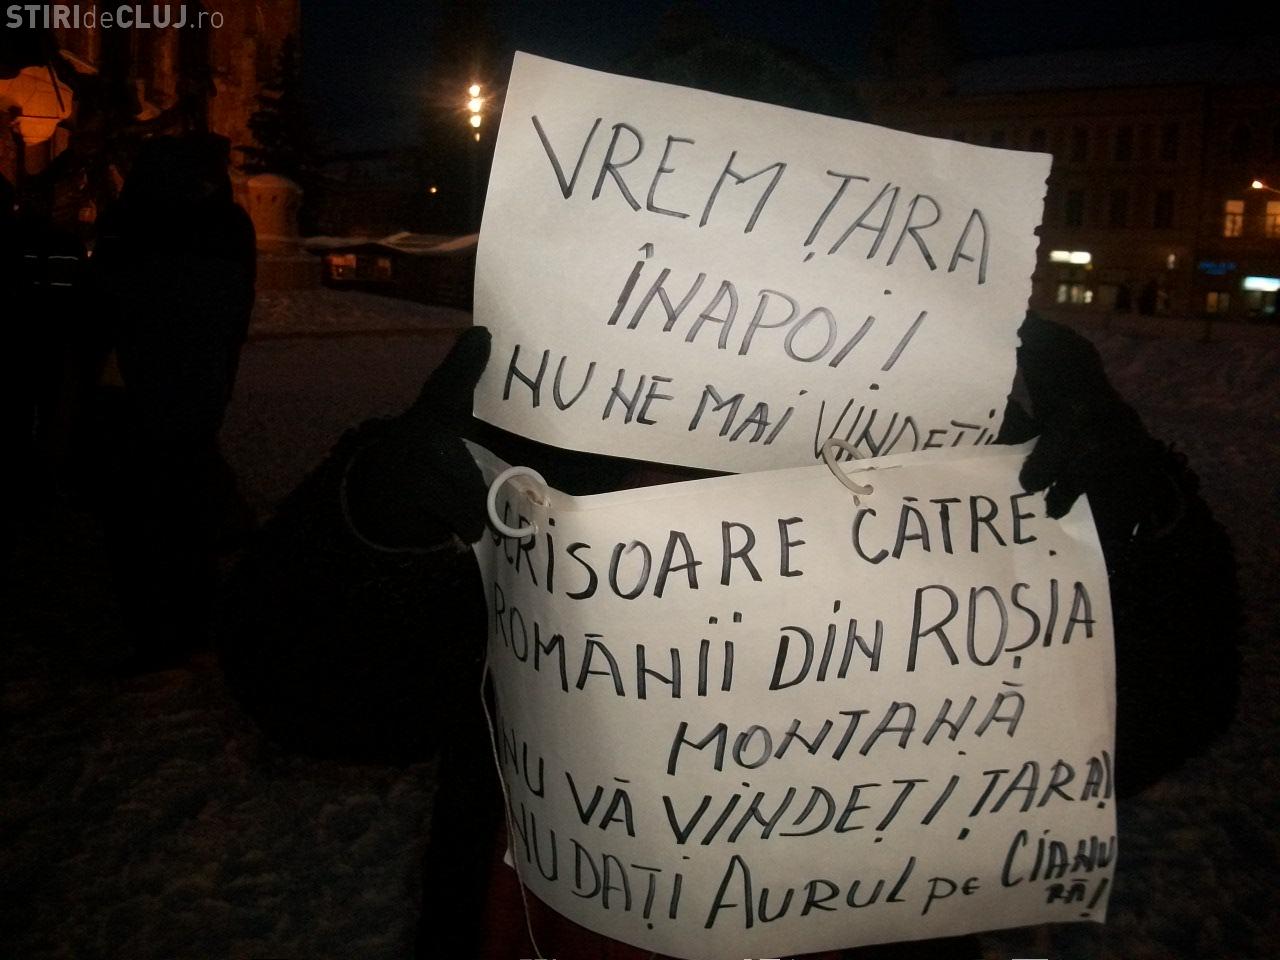 STIRIdeCLUJ.ro
VREM ȚARA
ÎNAPOI!
NU NE MAI VINDEȚI!
SCRISOARE CĂTRE
ROMÂNII DIN ROȘIA
MONTANĂ
NU VĂ VINDEȚI ȚARA!
NU DAȚI AURUL PE CIANU
RĂ!